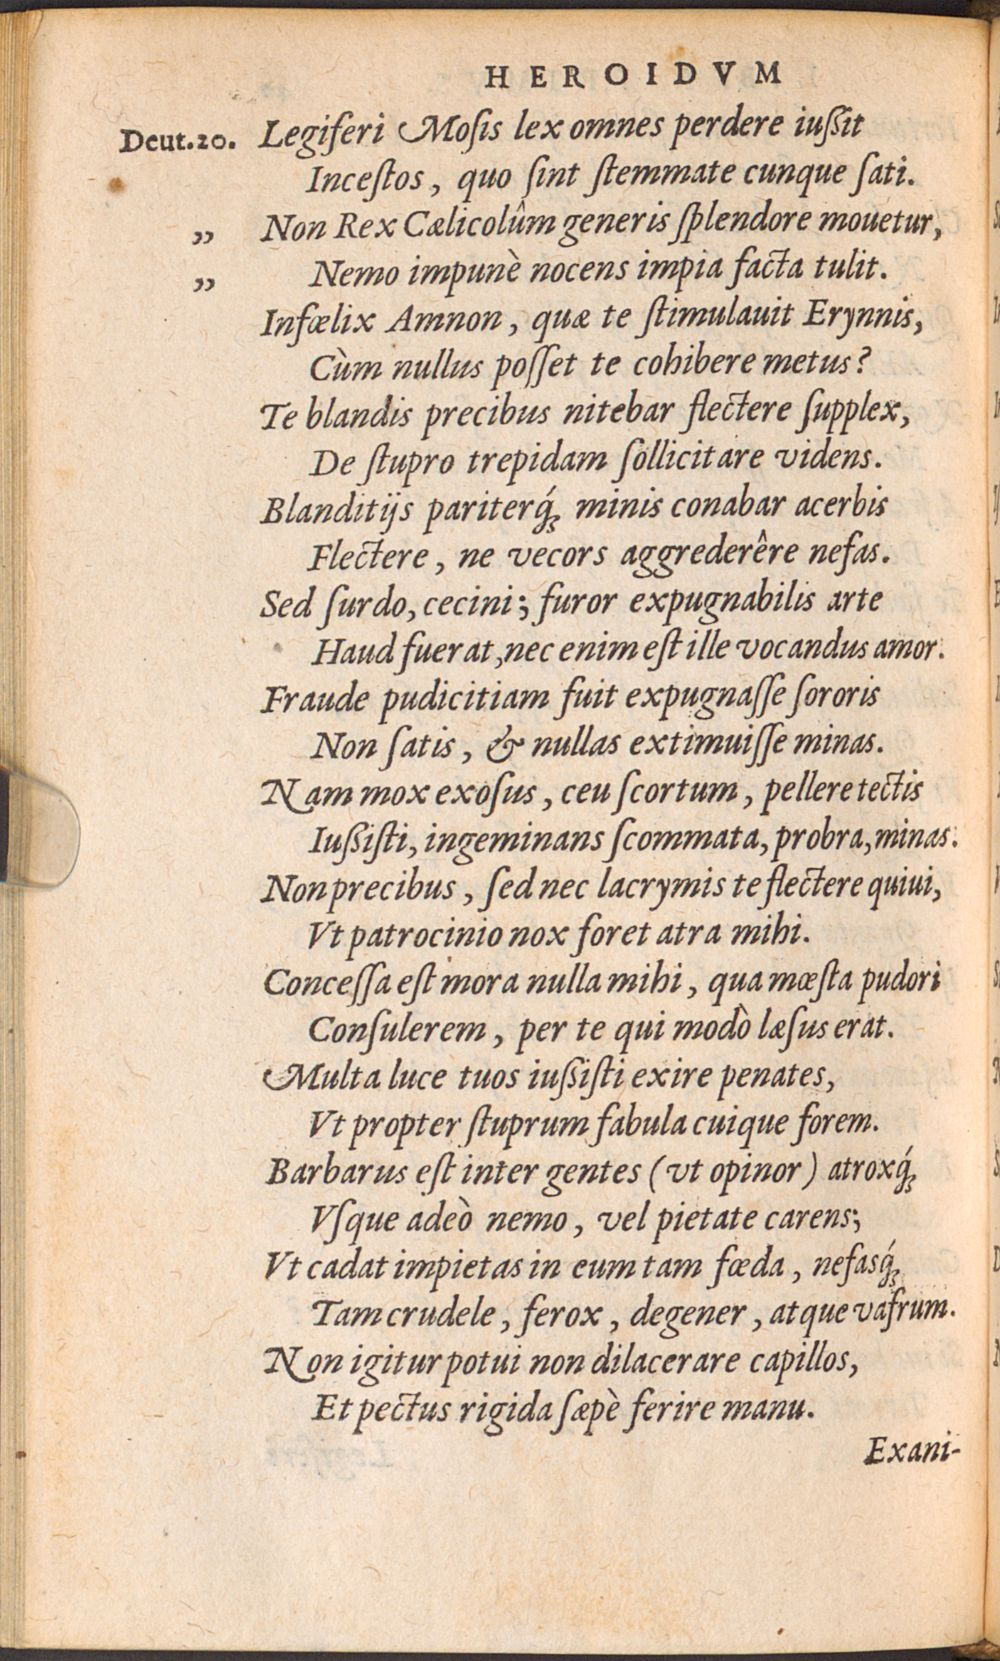 HEROIDVM
Deut.20. Legiferi Moſis lex omnes perdere iuſſit
Inceſtos, quo ſint ſtemmate cunque ſati.
„ Non Rex Cælicolûm generis ſplendore mouetur,
„ Nemo impunè nocens impia facta tulit.
Infœlix Amnon, quæ te ſtimulauit Erynnis,
Cùm nullus poſſet te cohibere metus?
Te blandis precibus nitebar flectere ſupplex,
De ſtupro trepidam ſollicitare videns.
Blanditijs pariterq́; minis conabar acerbis
Flectere, ne vecors aggrederêre nefas.
Sed ſurdo, cecini; furor expugnabilis arte
Haud fuerat, nec enim eſt ille vocandus amor.
Fraude pudicitiam fuit expugnaſſe ſororis
Non ſatis, & nullas extimuiſſe minas.
Nam mox exoſus, ceu ſcortum, pellere tectis
Iuſſiſti, ingeminans ſcommata, probra, minas.
Non precibus, ſed nec lacrymis te flectere quiui,
Vt patrocinio nox foret atra mihi.
Conceſſa eſt mora nulla mihi, qua mœſta pudori
Conſulerem, per te qui modò læſus erat.
Multa luce tuos iuſſiſti exire penates,
Vt propter ſtuprum fabula cuique forem.
Barbarus eſt inter gentes (vt opinor) atroxq́;
Vſque adeò nemo, vel pietate carens;
Vt cadat impietas in eum tam fœda, nefasq́;
Tam crudele, ferox, degener, atque vafrum.
Non igitur potui non dilacerare capillos,
Et pectus rigida ſæpè ferire manu.
Exani-